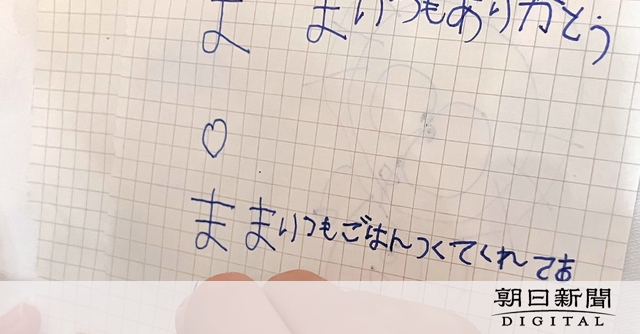 ま まいつもありがとう
♡
ままいつもごはんつくてくれてあ
朝日新聞
DIGITAL